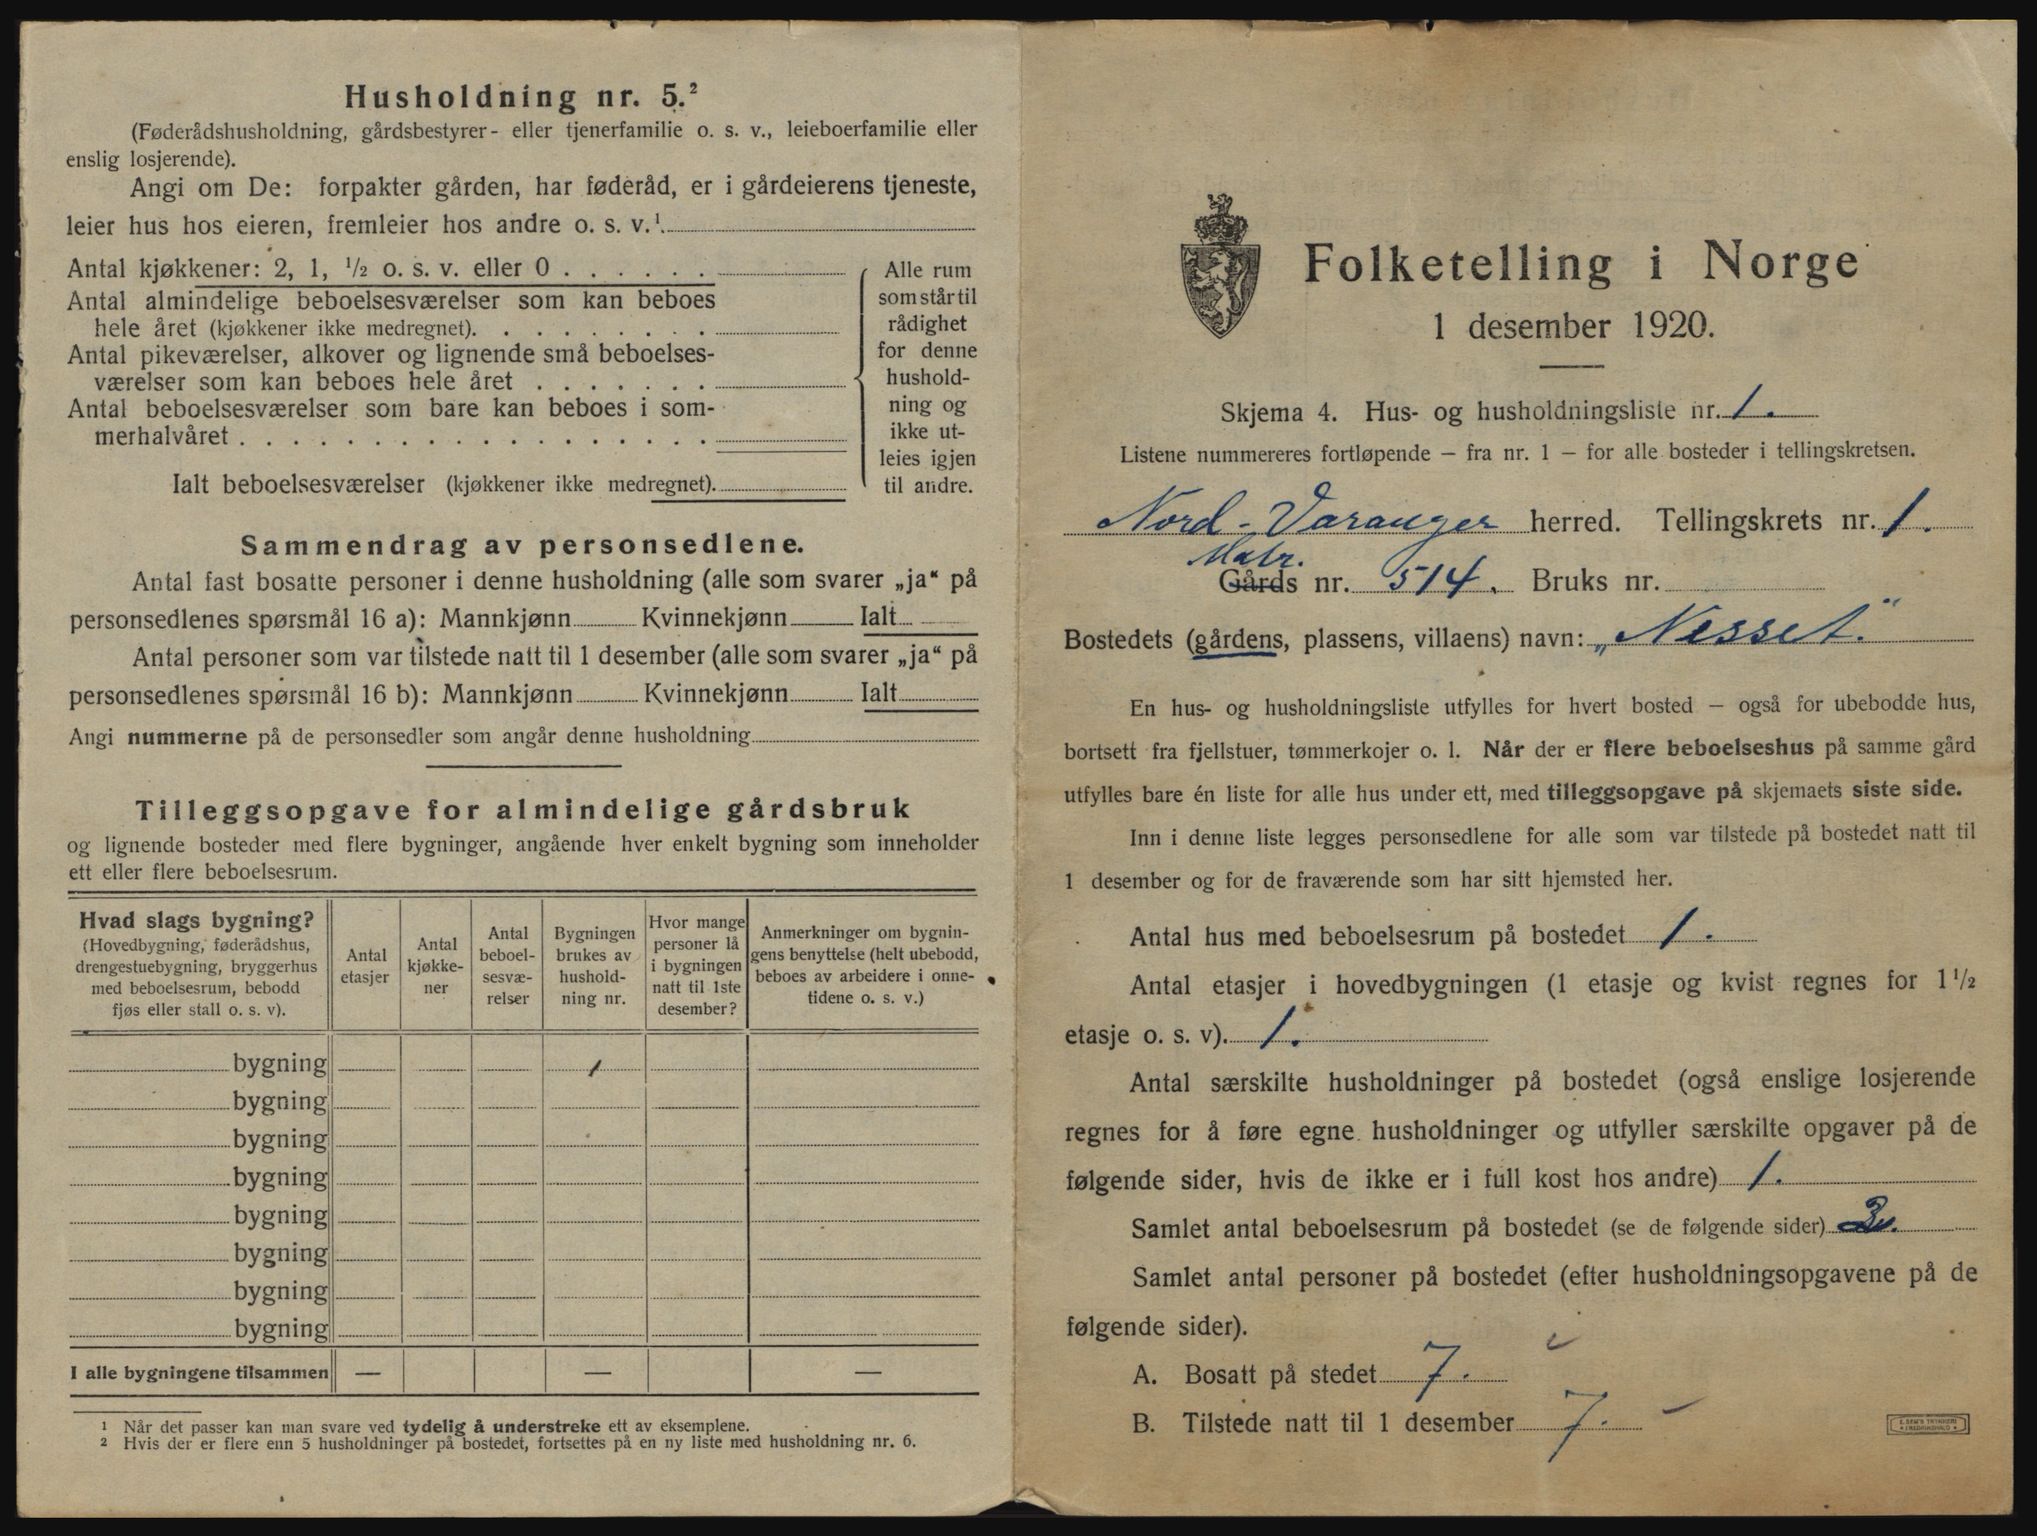 Husholdning nr. 5.²
(Føderådshusholdning, gårdsbestyrer- eller tjenerfamilie o. s. v., leieboerfamilie eller
enslig losjerende).
Angi om De: forpakter gården, har føderåd, er i gårdeierens tjeneste,
leier hus hos eieren, fremleier hos andre o. s. v.¹
Antal kjøkkener: 2, 1, ½ o. s. v. eller 0 . . . . . .
Antal almindelige beboelsesværelser som kan beboes
hele året (kjøkkener ikke medregnet). . . . . . . . .
Antal pikeværelser, alkover og lignende små beboelses-
værelser som kan beboes hele året . . . . . . .
Antal beboelsesværelser som bare kan beboes i som-
merhalvåret . . . . . . . . . . . . . . . . . .
Ialt beboelsesværelser (kjøkkener ikke medregnet).
Alle rum
som står til
rådighet
for denne
hushold-
ning og
ikke ut-
leies igjen
til andre.
Sammendrag av personsedlene.
Antal fast bosatte personer i denne husholdning (alle som svarer „ja“ på
personsedlenes spørsmål 16 a): Mannkjønn Kvinnekjønn Ialt
Antal personer som var tilstede natt til 1 desember (alle som svarer „ja“ på
personsedlenes spørsmål 16 b): Mannkjønn Kvinnekjønn Ialt
Angi nummerne på de personsedler som angår denne husholdning
Tilleggsopgave for almindelige gårdsbruk
og lignende bosteder med flere bygninger, angående hver enkelt bygning som inneholder
ett eller flere beboelsesrum.
Hvad slags bygning?
(Hovedbygning, føderådshus,
drengestuebygning, bryggerhus
med beboelsesrum, bebodd
fjøs eller stall o. s. v).
Antal
etasjer
Antal
kjøkke-
ner
Antal
beboel-
sesvæ-
relser
Bygningen
brukes av
hushold-
ning nr.
Hvor mange
personer lå
i bygningen
natt til 1ste
desember?
Anmerkninger om bygnin-
gens benyttelse (helt ubebodd,
beboes av arbeidere i onne-
tidene o. s. v.)
bygning 1
bygning
bygning
bygning
bygning
bygning
bygning
bygning
I alle bygningene tilsammen — — —
¹ Når det passer kan man svare ved tydelig å understreke ett av eksemplene.
² Hvis der er flere enn 5 husholdninger på bostedet, fortsettes på en ny liste med husholdning nr. 6.
Folketelling i Norge
1 desember 1920.
Skjema 4. Hus- og husholdningsliste nr. 1.
Listene nummereres fortløpende — fra nr. 1 — for alle bosteder i tellingskretsen.
Nord-Varanger herred. Tellingskrets nr. 1.
Matr.
Gårds nr. 514. Bruks nr.
Bostedets (gårdens, plassens, villaens) navn: „Nesset“.
En hus- og husholdningsliste utfylles for hvert bosted — også for ubebodde hus,
bortsett fra fjellstuer, tømmerkojer o. l. Når der er flere beboelseshus på samme gård
utfylles bare én liste for alle hus under ett, med tilleggsopgave på skjemaets siste side.
Inn i denne liste legges personsedlene for alle som var tilstede på bostedet natt til
1 desember og for de fraværende som har sitt hjemsted her.
Antal hus med beboelsesrum på bostedet 1.
Antal etasjer i hovedbygningen (1 etasje og kvist regnes for 1½
etasje o. s. v). 1.
Antal særskilte husholdninger på bostedet (også enslige losjerende
regnes for å føre egne husholdninger og utfyller særskilte opgaver på de
følgende sider, hvis de ikke er i full kost hos andre) 1.
Samlet antal beboelsesrum på bostedet (se de følgende sider)
Samlet antal personer på bostedet (efter husholdningsopgavene på de
følgende sider).
A. Bosatt på stedet 7.
B. Tilstede natt til 1 desember 7.